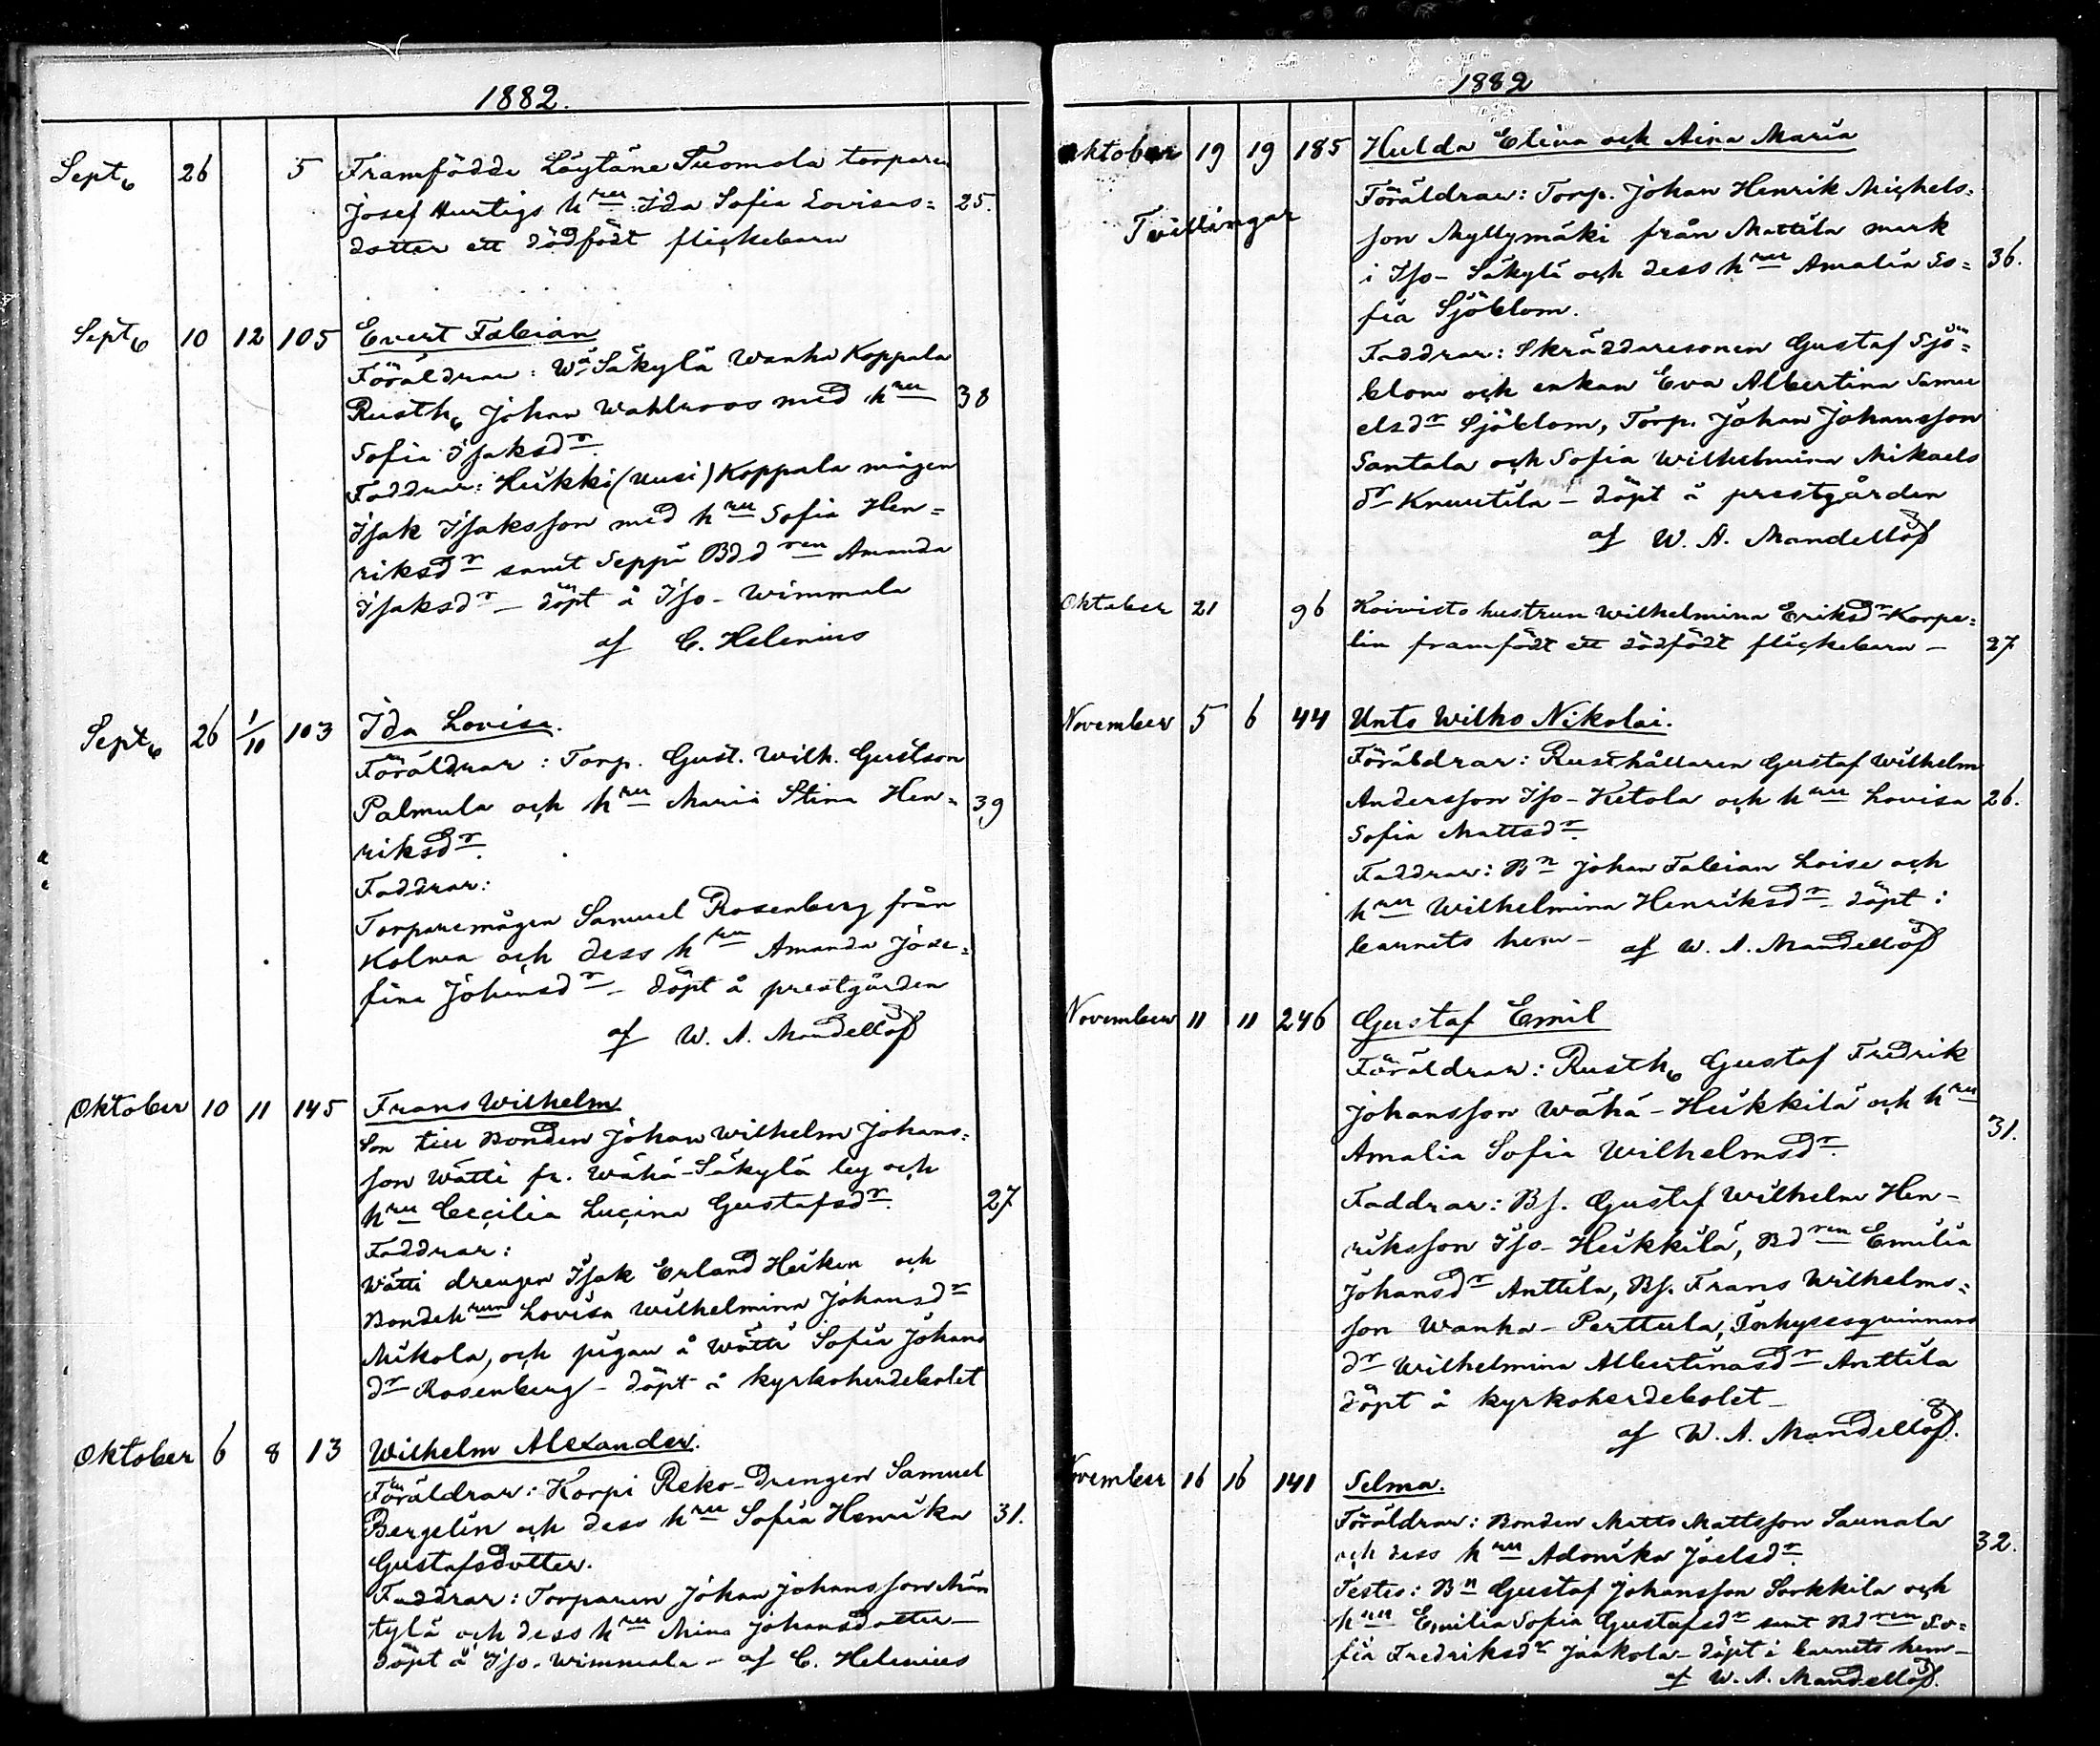 1882.
Sept. 26 5 Framfödde Löytäne Tuomola torparen
Josef Hurtigs hru Ida Sofia Lovisas= 25.
dotter ett dödfödt flickebarn
Sept. 10 12 105 Evert Fabian
Föräldrar: Wä Säkylä Wanha Koppala
Rusth. Johan Wahlroos med hru 38
Sofia Isaksdr.
Faddrar: Heikki (Uusi) Koppala mågen
Isak Isaksson med hru Sofia Hen=
riksdr samt Seppä Bddren Amanda
Isaksdr - döpt å Iso-Wimmala
af C. Helenius
Sept. 26 1/10 103 Ida Lovisa.
Föräldrar: Torp. Gust. Wilh. Gustson
Palmula och hru Maria Stina Hen= 39
riksdr.
Faddrar:
Torparemågen Samuel Rosenberg från
Kolma och dess hru Amanda Jose=
fina Johansdr - döpt å prestgården
af W. A. Mandellöf
Oktober 10 11 145 Frans Wilhelm
Son till Bonden Johan Wilhelm Johans=
son Wätti fr. Wähä-Säkylä by och
hru Cecilia Lucina Gustafsdr. 27
Faddrar:
Wätti drengen Isak Erland Heiken och
Bondehrun Lovisa Wilhelmina Johansdr
Mikola, och pigan å Wätti Sofia Johans
dr Rosenberg - döpt å kyrkoherdebolet
Oktober 6 8 13 Wilhelm Alexander.
Föräldrar: Korpi Reko-Drengen Samuel
Bergelin och dess hru Sofia Henrika 31.
Gustafsdotter.
Faddrar: Torparen Johan Johansson Män
tylä och dess hru Mina Johansdotter -
döpt å Iso-Wimmala - af C. Helenius
1882
Oktober 19 19 185 Hulda Elina och Aina Maria
Föräldrar: Torp. Johan Henrik Michels=
Tvillingar son Myllymäki från Mattila mark
i Iso-Säkylä och dess hru Amalia So= 36.
fia Sjöblom.
Faddrar: Skräddaresonen Gustaf Sjö=
blom och enkan Eva Albertina Samu
elsdr Sjöblom, Torp. Johan Johansson
Santala och Sofia Wilhelmina Mikaels
dr Knuutila - döpt å prestgården
af W. A. Mandellöf
Oktober 21 96 Koivisto hustrun Wilhelmina Eriksdr Korpe=
lin framfödt ett dödfödt flickebarn - 27
November 5 6 44 Unto Wilho Nikolai.
Föräldrar: Rusthållaren Gustaf Wilhelm
Andersson Iso-Ketola och hru Lovisa 26.
Sofia Mattsdr.
Faddrar: Bn Johan Fabian Loise och
hru Wilhelmina Henriksdr döpt i
barnets hem - af W. A. Mandellöf
November 11 11 246 Gustaf Emil
Föräldrar: Rusth. Gustaf Fredrik
Johansson Wähä-Heikkilä och hru 31.
Amalia Sofia Wilhelmsdr.
Faddrar: Bs. Gustaf Wilhelm Hen-
riksson Iso-Heikkilä, Bdren Emilia
Johansdr Anttila, Bs. Frans Wilhelms=
son Wanha-Perttula, Inhysesqvinnans
dr Wilhelmina Albertinasdr Anttila
döpt å kyrkoherdebolet -
af W. A. Mandellöf.
November 16 16 141 Selma.
Föräldrar: Bonden Matts Mattsson Saunala
och dess hru Adonika Joelsdr. 32.
Testes: Bn Gustaf Johansson Sorkkila och
hrun Emilia Sofia Gustafsdr samt Bdren So=
fia Fredriksdr Jaakola - döpt i barnets hem -
af W. A. Mandellöf.